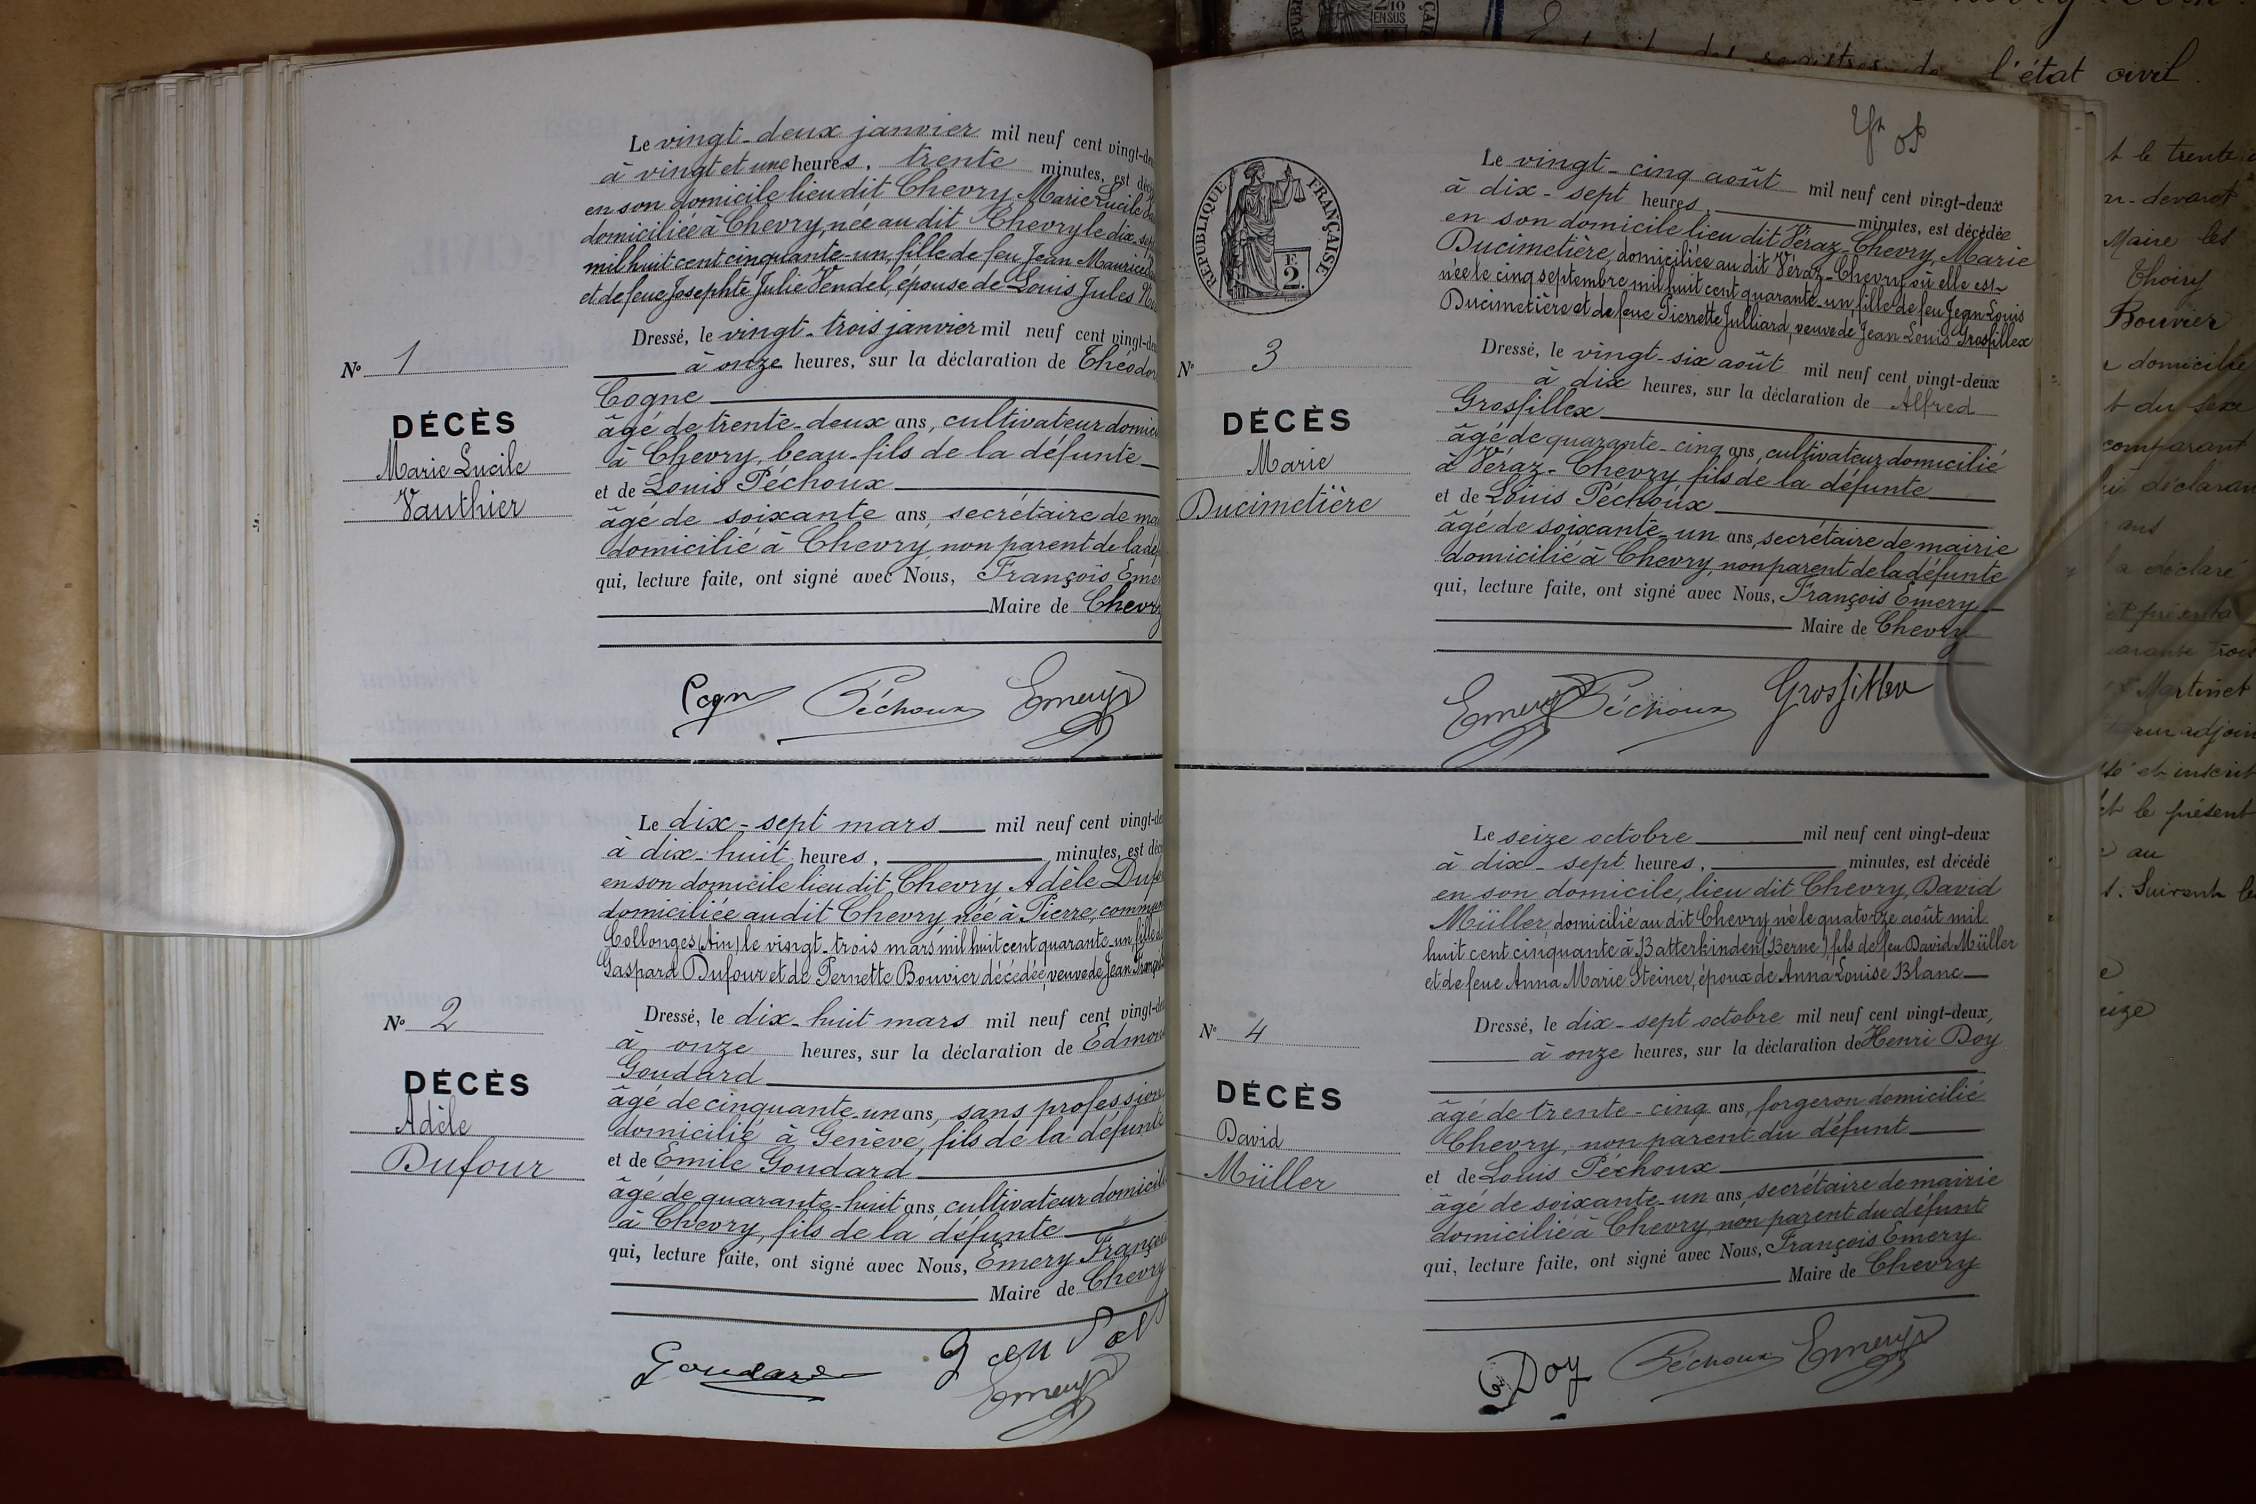 Le vingt-deux janvier mil neuf cent vingt-
à vingt et une heures, trente minutes, est
en son domicile lieu dit Chevry Marie Lucile
domiciliée à Chevry, née au dit Chevry le dix-
mil huit cent cinquante-un, fille de feu Jean Maurice
et de feue Josephte Julie Vendel, épouse de Louis Jules
Dressé, le vingt-trois janvier mil neuf cent vingt-
à onze heures, sur la déclaration de
Cogne
âgé de trente-deux ans, cultivateur
à Chevry, beau-fils de la défunte
et de Louis Péchoux
âgé de soixante ans, secrétaire de
domicilié à Chevry, non parent de la
qui, lecture faite, ont signé avec Nous, François
Maire de Chevry
N° 1
DÉCÈS
Marie Lucile
Vauthier
Péchoux Emery
Le dix-sept mars mil neuf cent vingt-
à dix-huit heures, minutes, est
en son domicile lieu dit Chevry Adèle
domiciliée au dit Chevry, née à Pierre,
Collonges (Ain) le vingt-trois mars mil huit cent quarante-un, fille
Gaspard Dufour et de Pernette Bouvier décédée, veuve de Jean
Dressé, le dix-huit mars mil neuf cent vingt-
à onze heures, sur la déclaration de
Goudard
âgé de cinquante-un ans, sans profession
domicilié à Genève, fils de la défunte
et de Emile Goudard
âgé de quarante-huit ans, cultivateur
à Chevry, fils de la défunte
qui, lecture faite, ont signé avec Nous, Emery
Maire de Chevry
N° 2
DÉCÈS
Adèle
Dufour
Goudard
Emery
RÉPUBLIQUE FRANÇAISE
2 F.
Le vingt-cinq août mil neuf cent vingt-deux
à dix-sept heures, minutes, est décédée
en son domicile lieu dit Véraz-Chevry, Marie
Ducimetière, domiciliée au dit Véraz-Chevry où elle est
née le cinq septembre mil huit cent quarante-un, fille de feu Jean-Louis
Ducimetière et de feue Pierrette Julliard, veuve de Jean Louis Grosfillex
Dressé, le vingt-six août mil neuf cent vingt-deux
à dix heures, sur la déclaration de Alfred
Grosfillex
âgé de quarante-cinq ans, cultivateur domicilié
à Véraz-Chevry fils de la défunte
et de Louis Péchoux
âgé de soixante-un ans, secrétaire de mairie
domicilié à Chevry, non parent de la défunte
qui, lecture faite, ont signé avec Nous, François Emery
Maire de Chevry
N° 3
DÉCÈS
Marie
Ducimetière
Emery Péchoux Grosfillex
Le seize octobre mil neuf cent vingt-deux
à dix-sept heures, minutes, est décédé
en son domicile, lieu dit Chevry, David
Müller, domicilié au dit Chevry né le quatorze août mil
huit cent cinquante à Batterkinden (Berne) fils de feu David Müller
et de feue Anna Marie Steiner, époux de Anna Louise Blanc
Dressé, le dix-sept octobre mil neuf cent vingt-deux,
à onze heures, sur la déclaration de Henri Doy
âgé de trente-cinq ans, forgeron domicilié
Chevry, non parent du défunt
et de Louis Péchoux
âgé de soixante-un ans, secrétaire de mairie
domicilié à Chevry, non parent du défunt
qui, lecture faite, ont signé avec Nous, François Emery
Maire de Chevry
N° 4
DÉCÈS
David
Müller
Doy Péchoux Emery
l'état civil.
le trente
Maire les
Thoiry
Bouvier
domicilié
du sexe
comparant
déclaran
ans
a déclaré
Martinet
adjoin
et inscrit
le présent
au
Suivent le